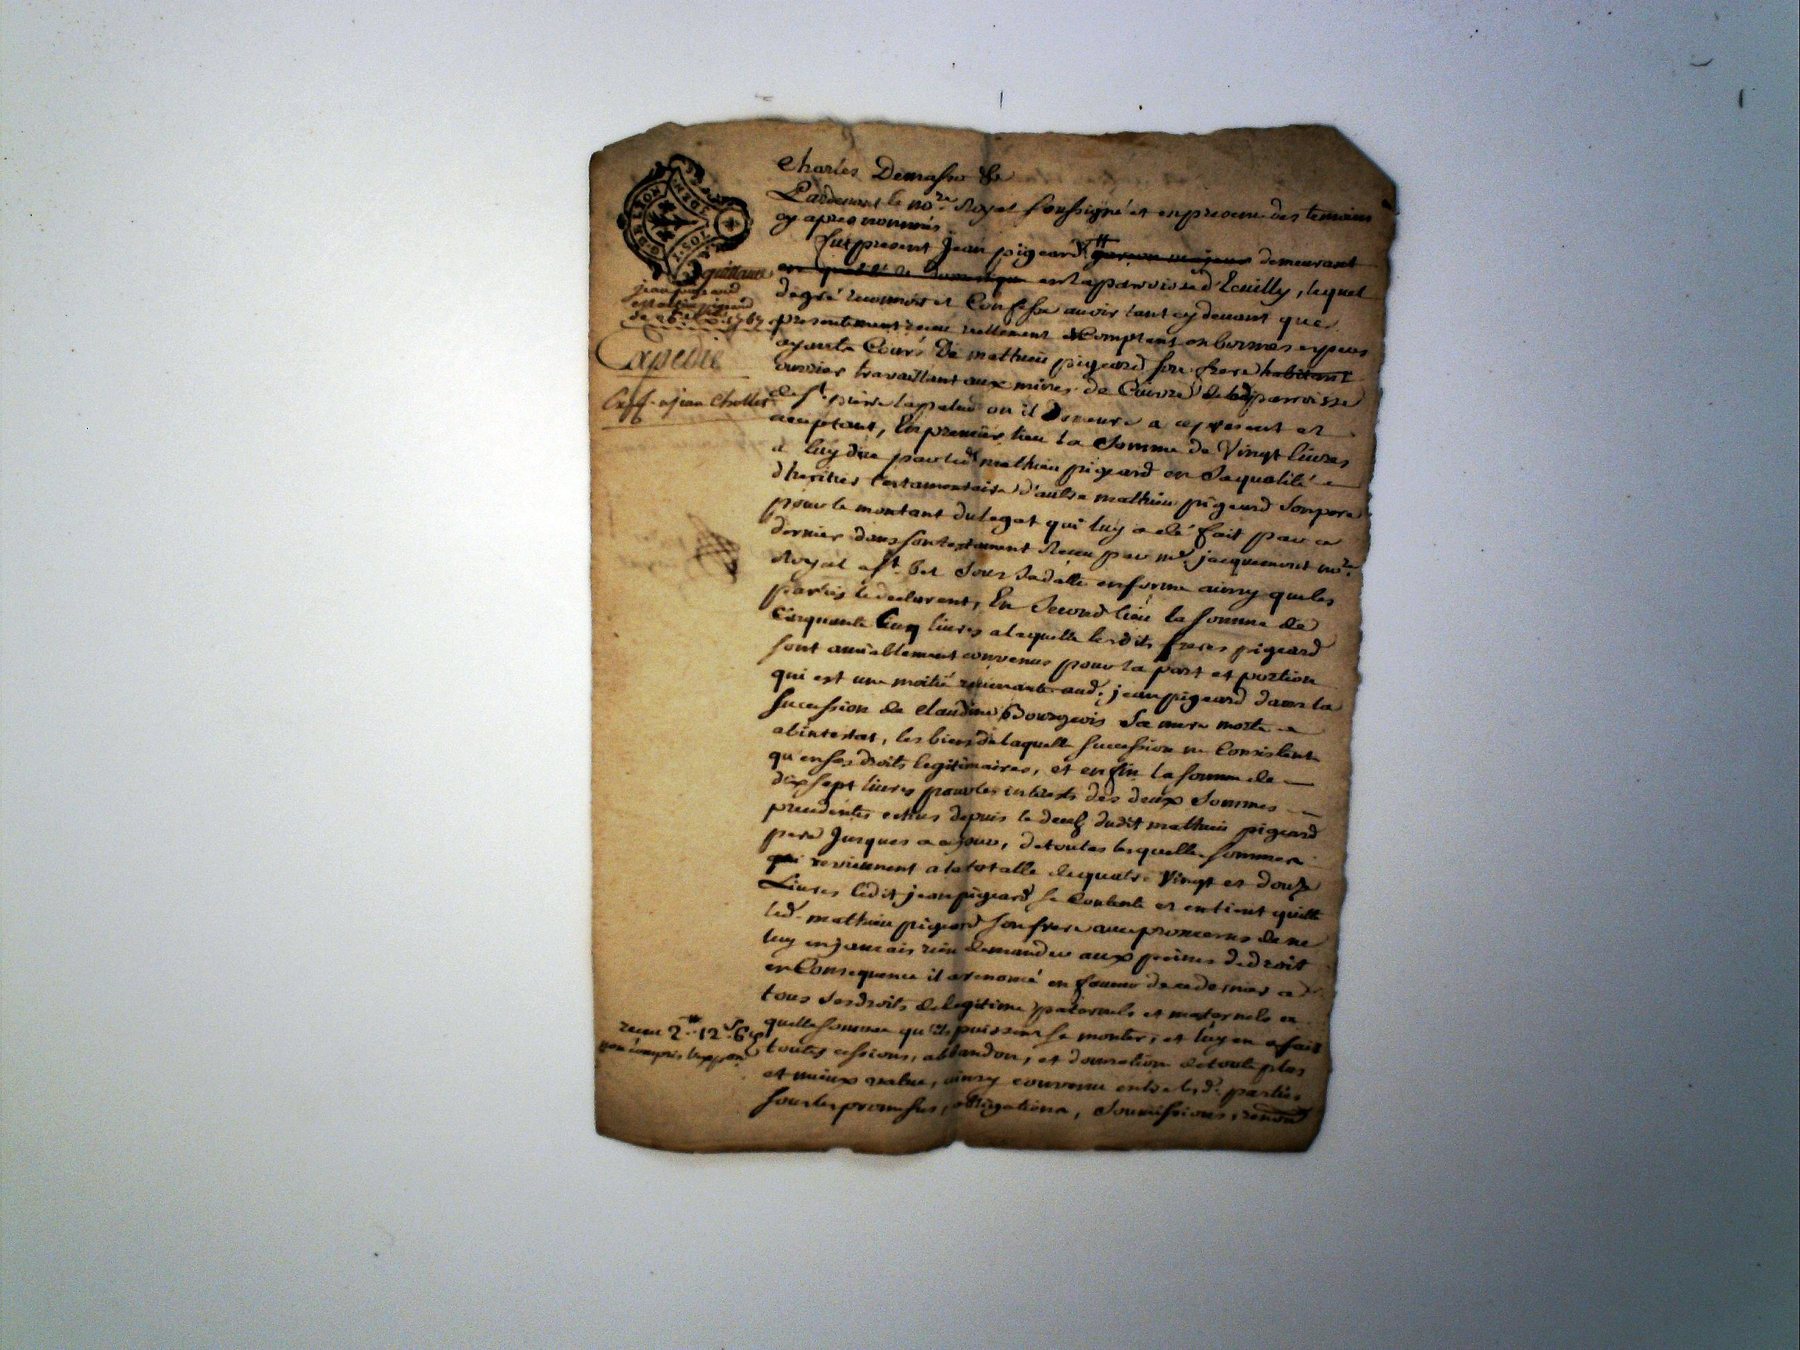 G. DE LYON
Charles Demasso &c
Pardevant le no.re Royal soussigné et en presence des temoins
cy apres nommés
fut present Jean pigeard garçon majeur demeurant
en qualité de domestique en la paroisse d'Ecuilly, lequel
de gré reconnoit et Confesse avoir tant cy devant que
presentement receu reellement et Comptant en bonnes especes
ayants Cours de mathieu pigeard son frere habitant
ouvrier travaillant aux mines de Cuivre de la parroisse
de s.t pierre la palud ou il demeure a ce present et
acceptant, En premier lieu la Somme de Vingt livres
a luy düe par led. mathieu pigeard en sa qualité
d'heritier testamentaire d'autre mathieu pigeard son pere
pour le montant du legat qui luy a été fait par ce
dernier dans son testament Receu par m.e jacquemont no.re
Royal a st. bel sous sa datte en forme ainsy que les
parties le declarent, En Second lieu la somme de
Cinquante Cinq livres a laquelle lesdits freres pigeard
sont amiablement convenus pour la part et portion
qui est une moitié revenante aud. jean pigeard dans la
succession de Claudine Bourgeois Sa mere morte
abintestat, les biens de laquelle succession ne Consistent
qu'en ses droits legitimaires, et enfin la somme de
dix sept livres pour les interets des deux Sommes
precedentes echus depuis le decez dudit mathieu pigeard
pere Jusques a ce jour, de toutes lesquelles sommes
qui reviennent a la totalle de quatre Vingt et douze
Livres ledit jean pigeard se Contente et en tient quitte
led. mathieu pigeard son frere avec promesse de ne
luy en jamais rien demander aux peines de droit
en Consequence il a renoncé en faveur de ce dernier a
tous ses droits de legitime paternels et maternels en
quelle somme qu'ils puissent se monter, et luy en a fait
toutes cessions, abbandon, et donnation de toute plus
et mieux value, ainsy convenu entre lesd. parties
sous les promesses, obligations, Soumissions, renon
quittance
jean pigeard
et mathieu pigeard
Expedié
Exp. a jean Chollet
receu 2.tt 12.s 6.d
non compris le papier